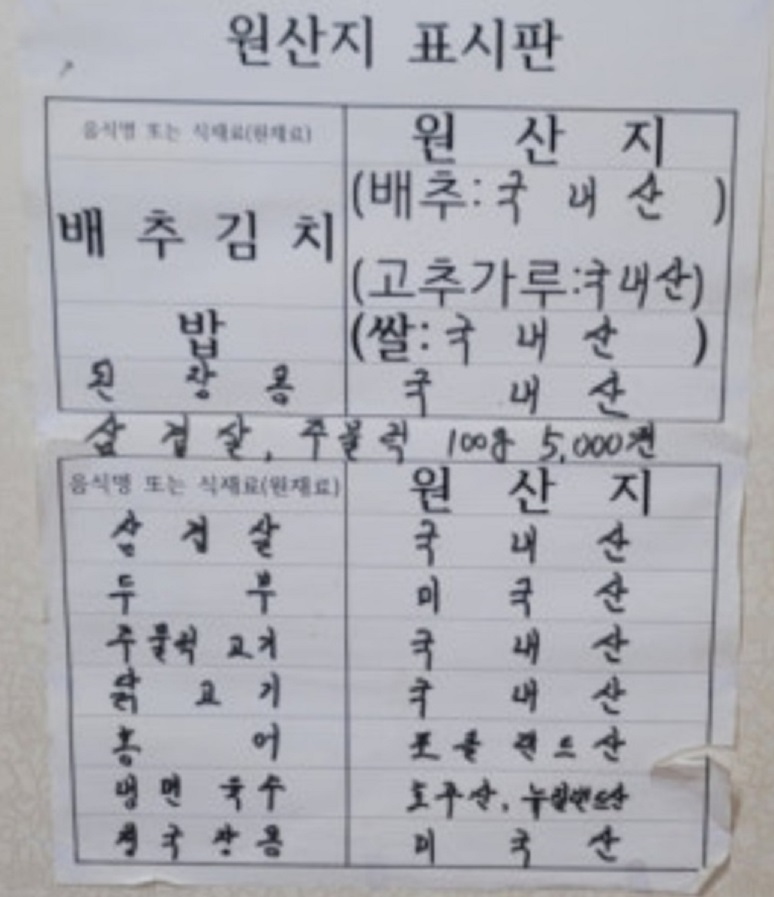 원산지 표시판
음식명 또는 식재료(원재료) 원 산 지
배 추 김 치 (배추:국 내 산 )
(고추가루:국내산)
밥 (쌀:국 내 산 )
된 장 콩 국 내 산
삼 겹 살, 주물럭 100g 5,000원
음식명 또는 식재료(원재료) 원 산 지
삼 겹 살 국 내 산
두 부 미 국 산
주물럭 고기 국 내 산
닭 고 기 국 내 산
홍 어 포 클 랜 드 산
냉 면 육 수 호주산, 뉴질랜드산
청 국 장 콩 미 국 산